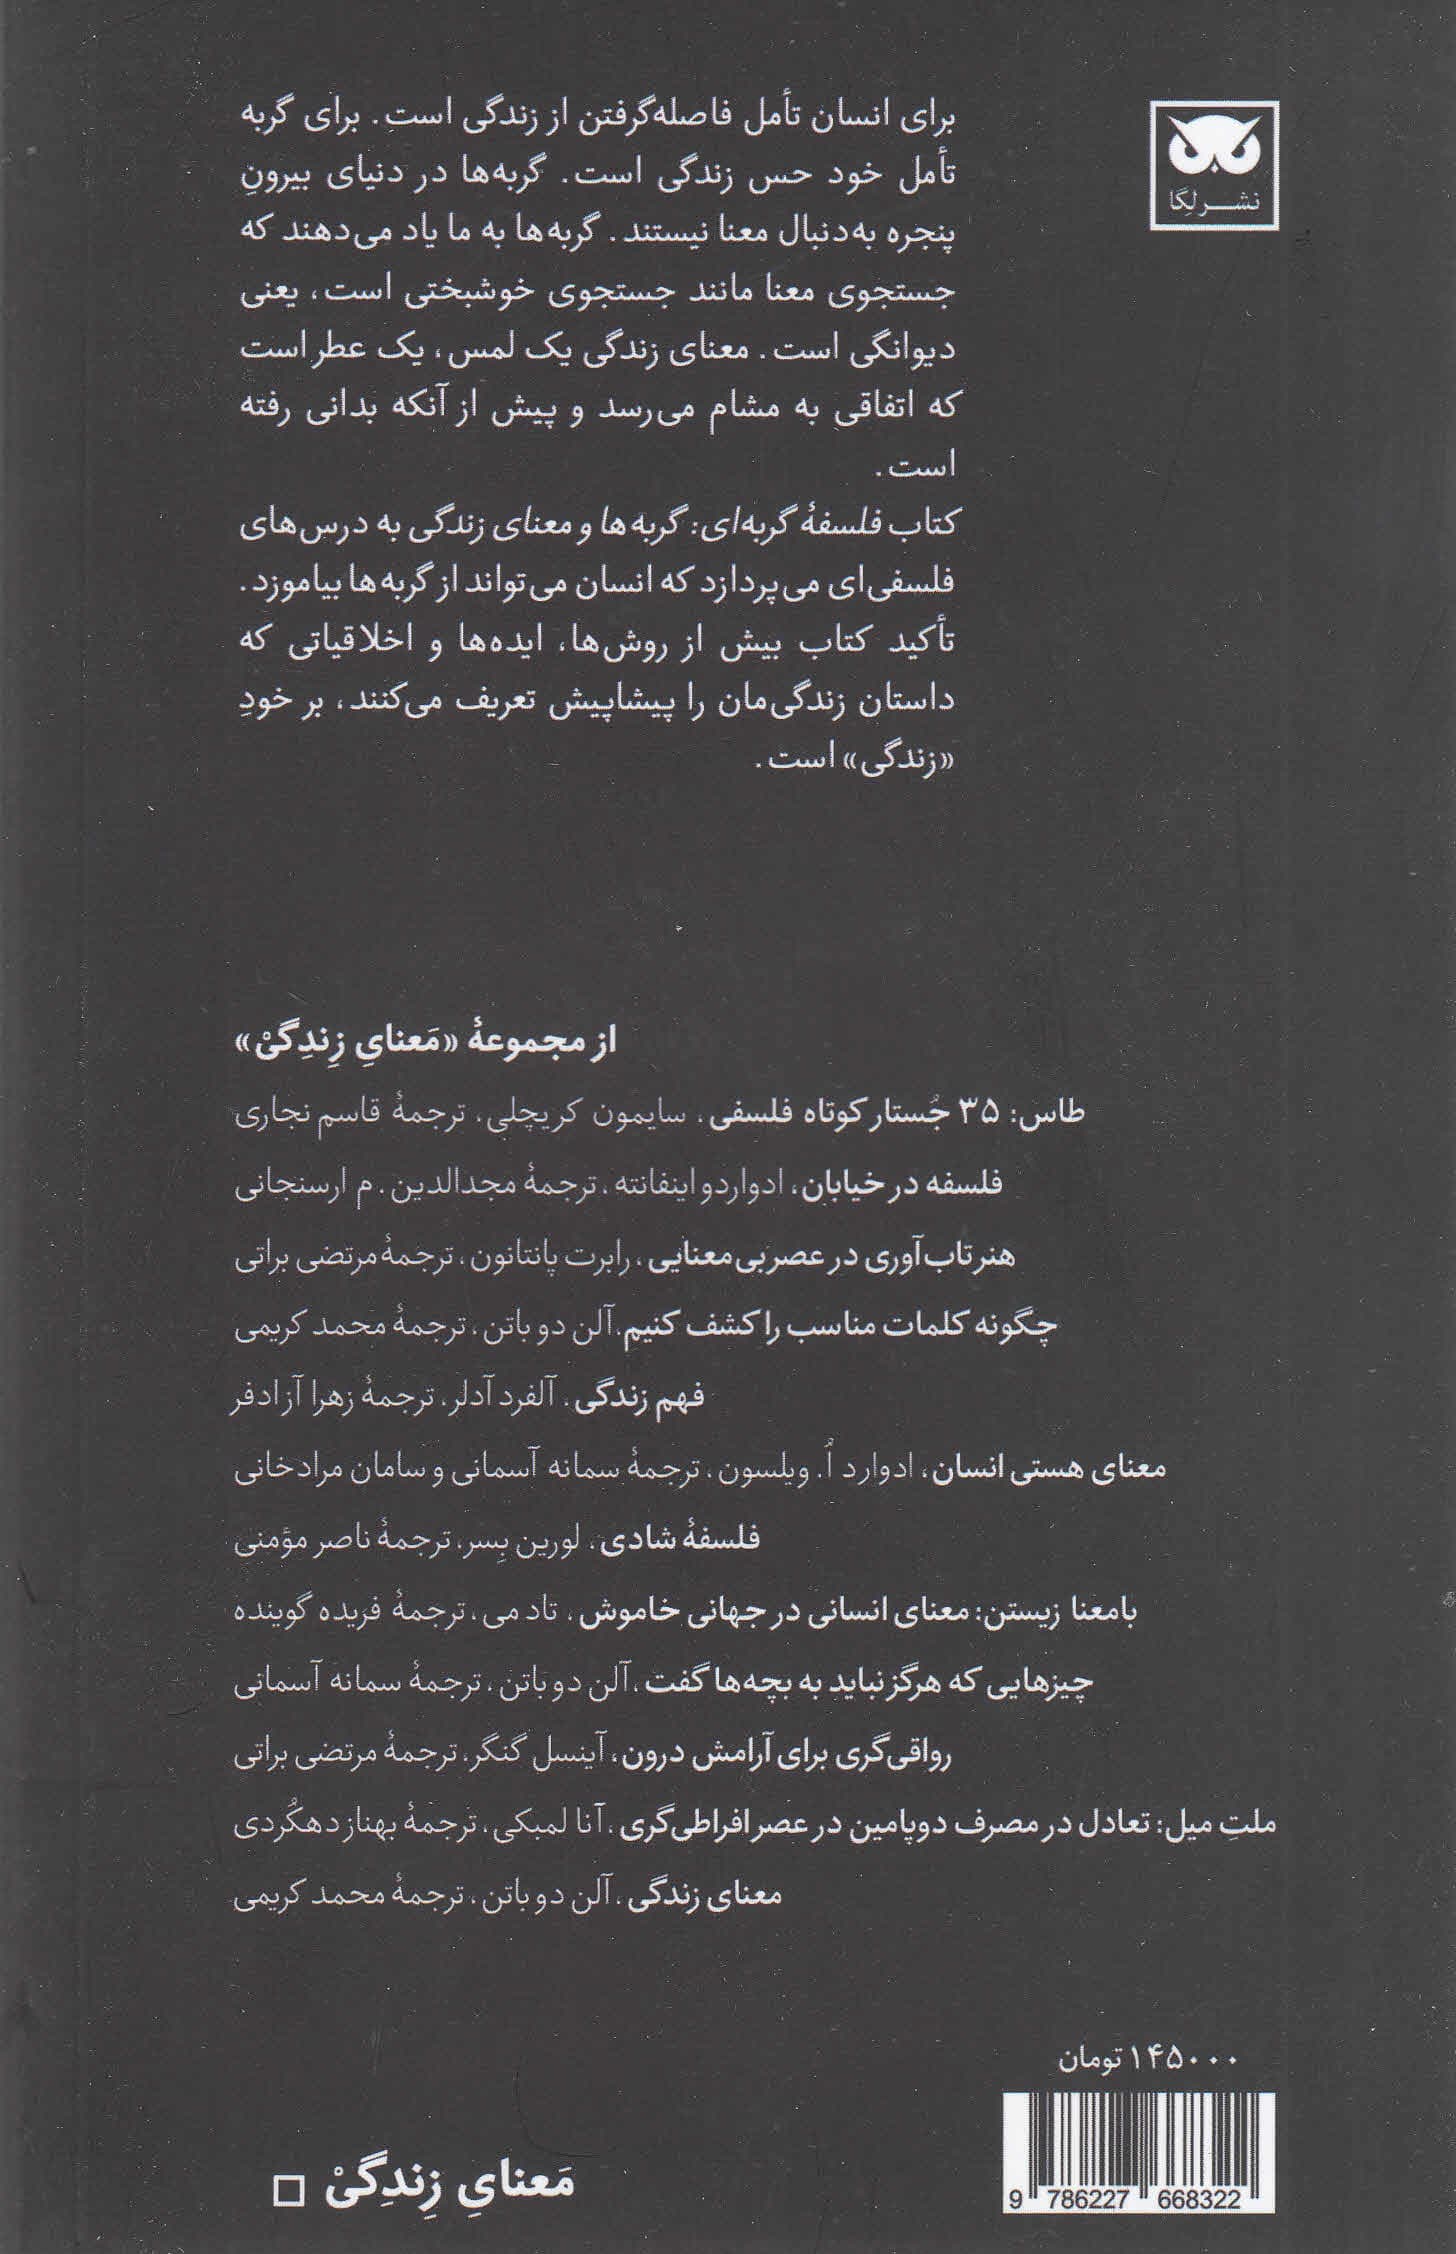 نشر لِگا
برای انسان تأمل فاصله‌گرفتن از زندگی است. برای گربه
تأمل خود حس زندگی است. گربه‌ها در دنیای بیرونِ
پنجره به‌دنبال معنا نیستند. گربه‌ها به ما یاد می‌دهند که
جستجوی معنا مانند جستجوی خوشبختی است، یعنی
دیوانگی است. معنای زندگی یک لمس، یک عطر است
که اتفاقی به مشام می‌رسد و پیش از آنکه بدانی رفته
است.
کتاب فلسفهٔ گربه‌ای: گربه‌ها و معنای زندگی به درس‌های
فلسفی‌ای می‌پردازد که انسان می‌تواند از گربه‌ها بیاموزد.
تأکید کتاب بیش از روش‌ها، ایده‌ها و اخلاقیاتی که
داستان زندگی‌مان را پیشاپیش تعریف می‌کنند، بر خودِ
«زندگی» است.
از مجموعهٔ «مَعنایِ زِندِگیْ»
طاس: ۳۵ جُستار کوتاه فلسفی، سایمون کریچلی، ترجمهٔ قاسم نجاری
فلسفه در خیابان، ادواردو اینفانته، ترجمهٔ مجدالدین. م ارسنجانی
هنر تاب‌آوری در عصر بی‌معنایی، رابرت پانتانون، ترجمهٔ مرتضی براتی
چگونه کلمات مناسب را کشف کنیم، آلن دو باتن، ترجمهٔ محمد کریمی
فهم زندگی، آلفرد آدلر، ترجمهٔ زهرا آزادفر
معنای هستی انسان، ادوارد اُ. ویلسون، ترجمهٔ سمانه آسمانی و سامان مرادخانی
فلسفهٔ شادی، لورین بِسر، ترجمهٔ ناصر مؤمنی
بامعنا زیستن: معنای انسانی در جهانی خاموش، تاد می، ترجمهٔ فریده گوینده
چیزهایی که هرگز نباید به بچه‌ها گفت، آلن دو باتن، ترجمهٔ سمانه آسمانی
رواقی‌گری برای آرامش درون، آینسل گنگر، ترجمهٔ مرتضی براتی
ملتِ میل: تعادل در مصرف دوپامین در عصر افراطی‌گری، آنا لمبکی، ترجمهٔ بهناز دهکُردی
معنای زندگی، آلن دو باتن، ترجمهٔ محمد کریمی
۱۴۵۰۰۰ تومان
9 786227 668322
مَعنایِ زِندِگیْ